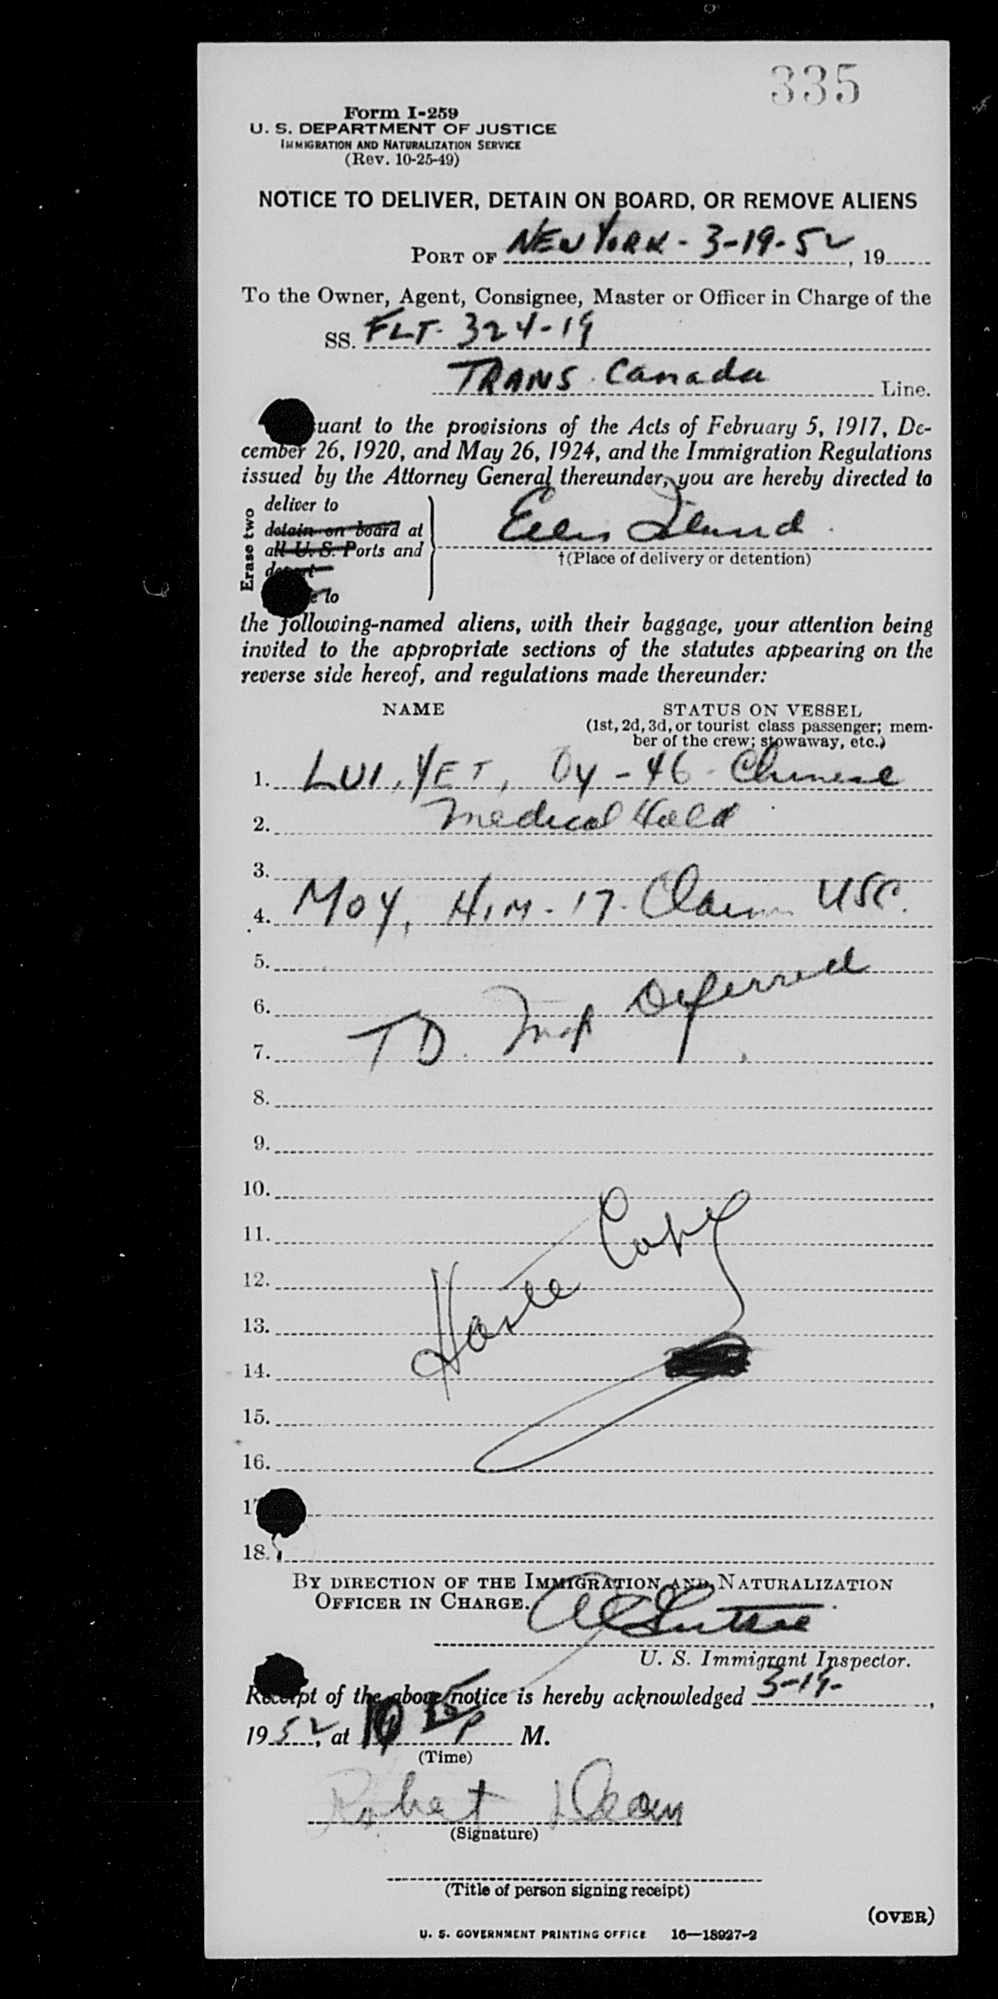 335
Form I-259
U. S. DEPARTMENT OF JUSTICE
IMMIGRATION AND NATURALIZATION SERVICE
(Rev. 10-25-49)
NOTICE TO DELIVER, DETAIN ON BOARD, OR REMOVE ALIENS
PORT OF NEW YORK - 3-19-52, 19
To the Owner, Agent, Consignee, Master or Officer in Charge of the
SS. FLT. 324-19
TRANS. Canada Line.
uant to the provisions of the Acts of February 5, 1917, De-
cember 26, 1920, and May 26, 1924, and the Immigration Regulations
issued by the Attorney General thereunder, you are hereby directed to
Erase two
deliver to
detain on board at
all U. S. Ports and
to
Ellis Island
†(Place of delivery or detention)
the following-named aliens, with their baggage, your attention being
invited to the appropriate sections of the statutes appearing on the
reverse side hereof, and regulations made thereunder:
NAME STATUS ON VESSEL
(1st, 2d, 3d, or tourist class passenger; mem-
ber of the crew; stowaway, etc.)
1. LUI, YET, Oy - 46 - Chinese
2. Medical Held
3.
4. MOY, HIM - 17 - Claim USC.
5.
6. Deferred
7. TD.
8.
9.
10.
11. Copy
12.
13.
14.
15.
16.
17
18.
BY DIRECTION OF THE IMMIGRATION AND NATURALIZATION
OFFICER IN CHARGE.
U. S. Immigrant Inspector.
Receipt of the above notice is hereby acknowledged 3-19-,
1952, at P M.
(Time)
Robert Dean
(Signature)
(Title of person signing receipt)
(OVER)
U. S. GOVERNMENT PRINTING OFFICE 16—18927-2